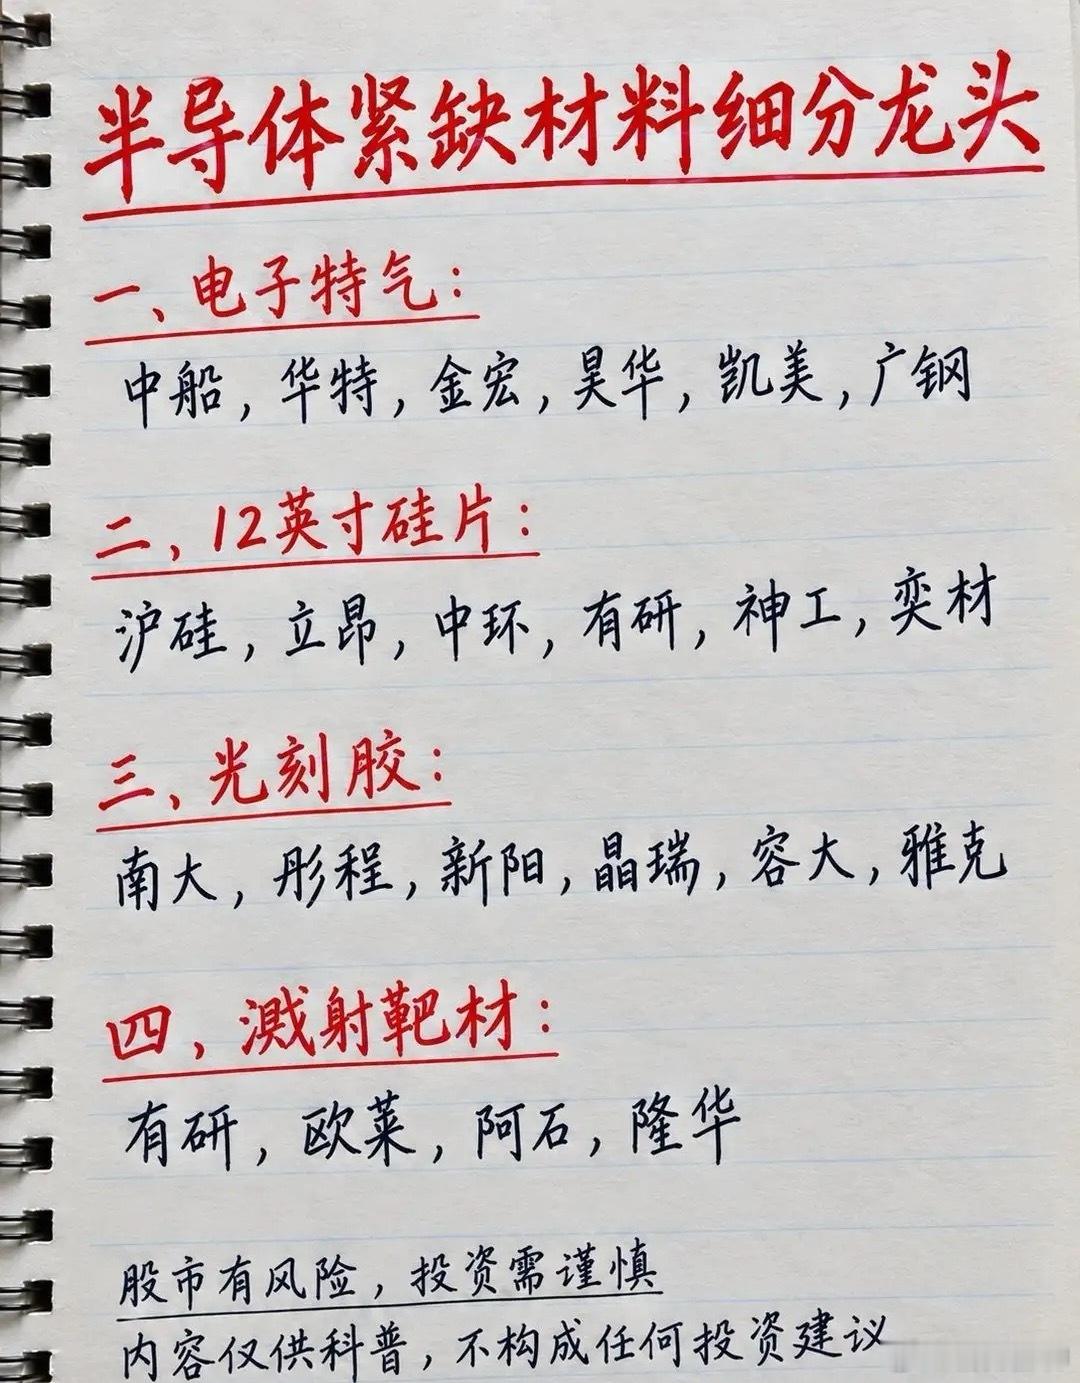 半导体紧缺材料细分龙头
一、电子特气:
中船,华特,金宏,昊华,凯美,广钢
二、12英寸硅片:
沪硅,立昂,中环,有研,神工,奕材
三、光刻胶:
南大,彤程,新阳,晶瑞,容大,雅克
四、溅射靶材:
有研,欧莱,阿石,隆华
股市有风险,投资需谨慎
内容仅供科普,不构成任何投资建议